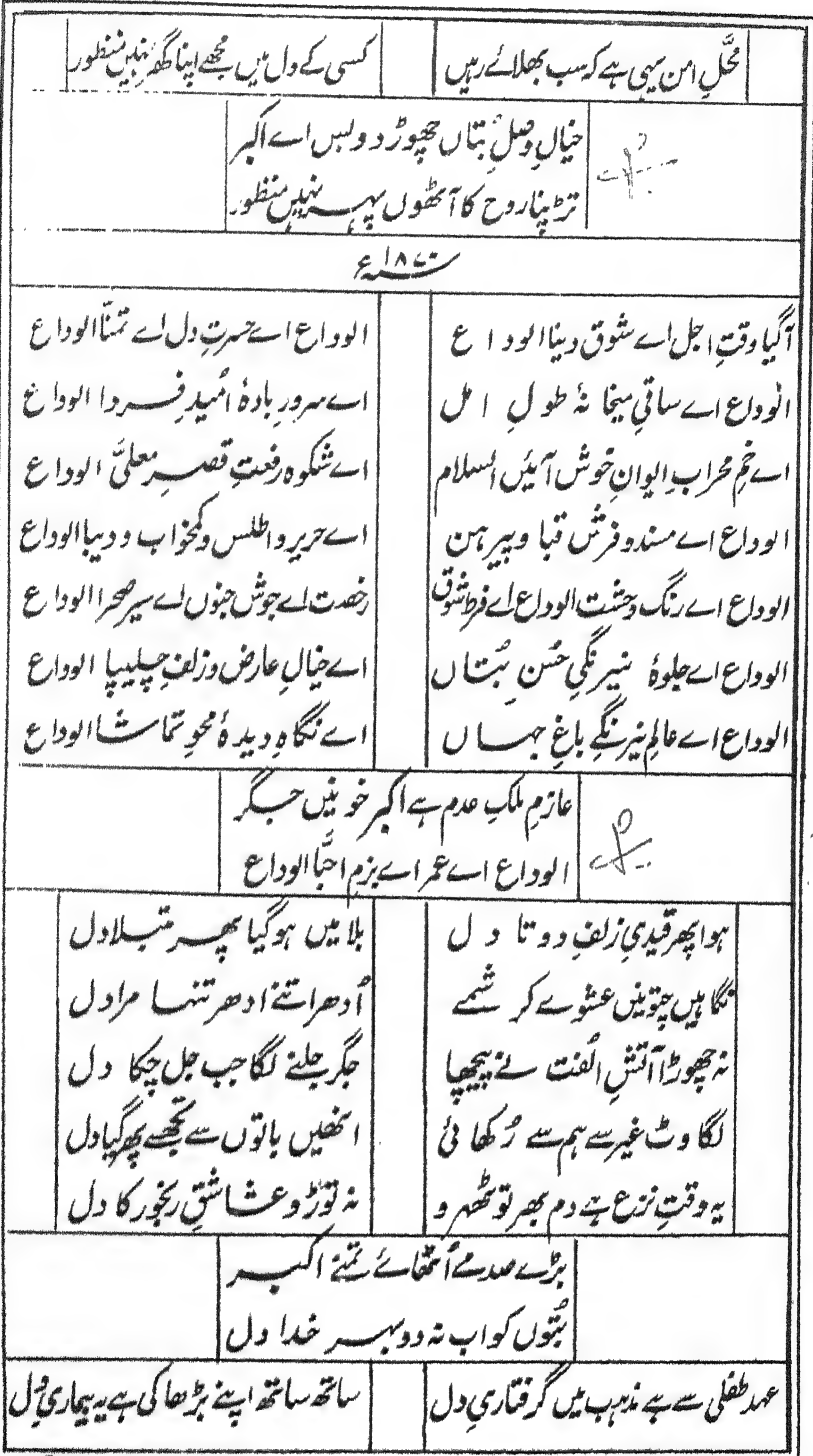 محلِّ امن یہی ہے کہ سب بھلائے رہیں
کسی کے دل میں مجھے اپنا گھر نہیں منظور
خیالِ وصلِ بتاں چھوڑ دو بس اے اکبر
تڑپنا روح کا آٹھوں پہر نہیں منظور
۱۸۷۰ء
آگیا وقتِ اجل اے شوق دینا الوداع
الوداع اے حسرتِ دل اے تمنّا الوداع
الوداع اے ساقیِ میخانۂ طولِ امل
اے سرورِ بادۂ امُیدِ فردا الوداع
اے خمِ محرابِ ایوانِ خوش آئیں السلام
اے شکوہ رفعتِ قصرِ معلیَّ الوداع
الوداع اے مسند و فرش قبا و پیرہن
اے حریر و اطلس و کمخواب و دیبا الوداع
الوداع اے رنگ وحشت الوداع اے فرط شوق
رخصت اے جوش جنوں اے سیر صحرا الوداع
الوداع اے جلوۂ نیرنگیِ حُسنِ بُتاں
اے خیالِ عارض و زلفِ چلیپا الوداع
الوداع اے عالمِ نیرنگیِ باغِ جہاں
اے نگاہِ دیدۂ محوِ تماشا الوداع
عازمِ ملکِ عدم ہے اکبر خونیں جگر
الوداع اے عمر اے بزمِ احبَّا الوداع
ہوا پھر قیدیِ زلفِ دوتا دل
بلا میں ہوگیا پھر مبتلا دل
نگاہیں چتونیں عشوے کرشمے
اُدھر اتنے ادھر تنہا مرا دل
نہ چھوڑا آتشِ الُفت نے پیچھا
جگر جلنے لگا جب جل چکا دل
لگاوٹ غیر سے ہم سے رُکھائی
انھیں باتوں سے تجھسے پھر گیا دل
یہ وقتِ نزع ہے دم بھر تو ٹھہرو
نہ توڑو عاشقِ رنجور کا دل
بڑے صدمے اُٹھائے تمنے اکبر
بُتوں کو اب نہ دو بہر خدا دل
عہد طفلی سے ہے مذہب میں گرفتاریِ دل
ساتھ ساتھ اپنے بڑھا کی ہے یہ بیماریِ دل